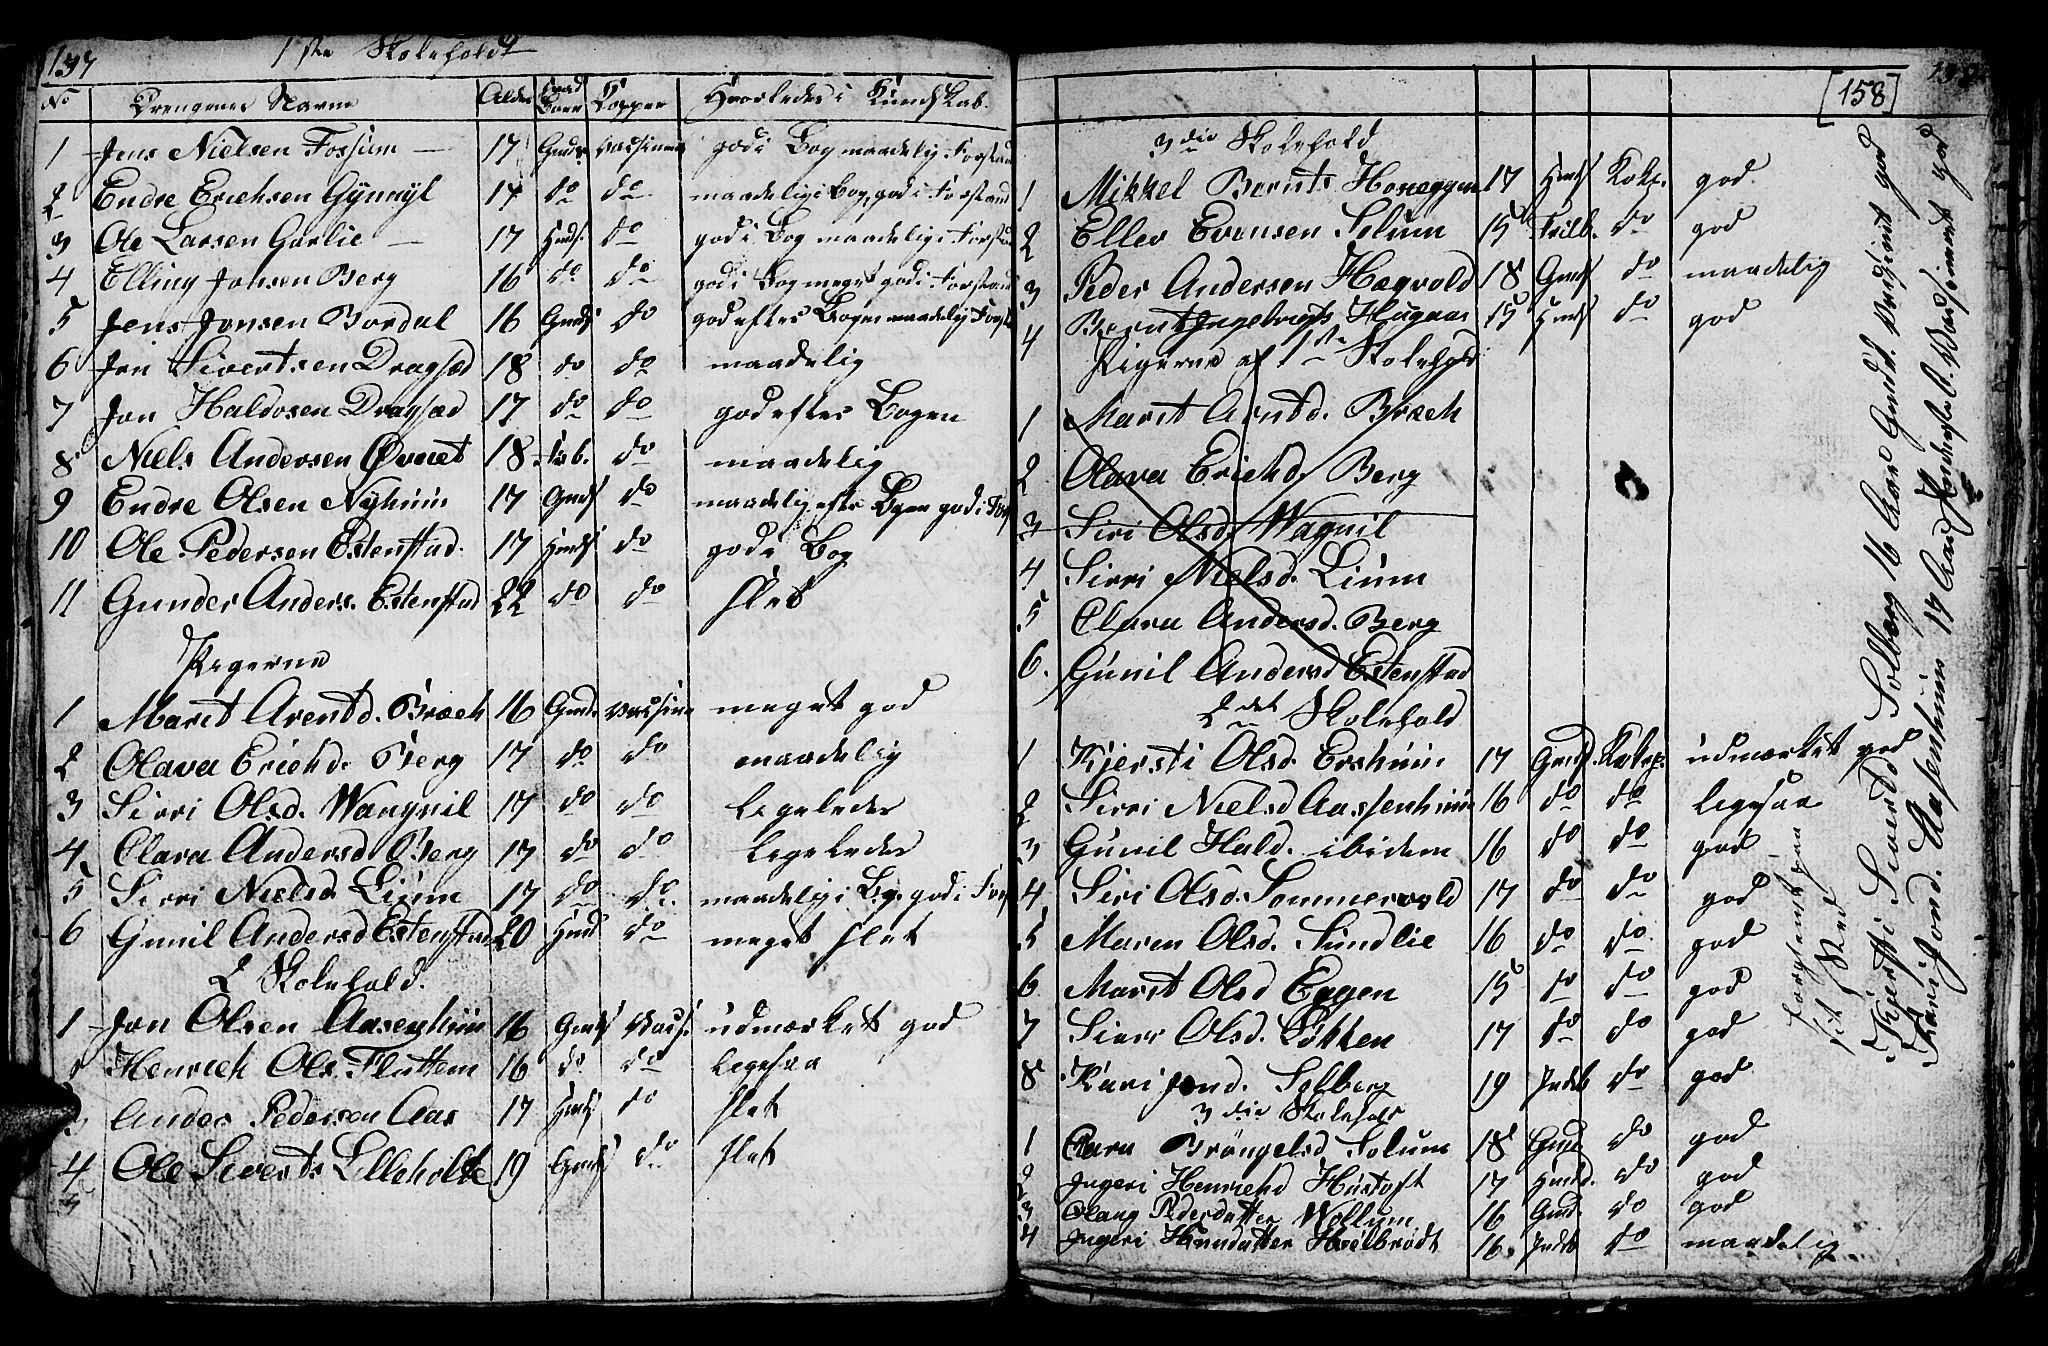 137
1ste Skolehold
No Drengenes Navne Alder Hvad Børn Kopper Hvorledes i Kundskab.
1 Jens Nielsen Fossum 17 Gmds Vacsinered god i Bog maadelig i Forstand
2 Endre Erichsen Gynnyl 17 do do maadelig i Bog, god i Forstand
3 Ole Larsen Garlie 17 Hmds. do god i Bog maadelig i Forstand
4 Elling Johsen Berg 16 do do god i Bog meget god i Forstand
5 Jens Jonsen Bordal 16 Gmds do god efter Bogen maadelig Forst
6 Jon Sivertsen Dragsæd 18 do do maadelig
7 Jon Haldosen Dragsæd 17 do do god efter Bogen
8 Niels Andersen Øvnet 18 do maadelig
9 Endre Olsen Nyhuus 17 Gmds do maadelig efter Bogen god i Fors
10 Ole Pedersen Estenstad. 17 Hmds do god i Bog
11 Gunder Anders. Estenstad 22 do do slet
Pigerne
1 Marit Arentd. Bræch 16 Gmd. Vacsine meget god
2 Olava Erichd. Berg 17 do do maadelig
3 Sirri Olsd. Wangvil 17 do do ligeledes
4 Clara Andersd Berg 17 do do ligeledes
5 Sirri Nielsd Liüm 17 do do. maadelig i Bog. god i Fors
6 Gunil Andersd Estenstad 20 Hmd do meget slet
2 Skolehold.
1 Jon Olsen Aasenhuus 16 Gmds Vacs. udmærket god
2 Henrich Ols. Fluttem 16 do do ligesaa
3 Andes Pedersen Aas 17 Hmds do slet
4 Ole Siverts Lilleholte 19 Gmds do slet
5
[158]
3die Skolehold
1 Mikkel Bernts Honeggen 17 Hmds Kokp. god
2 Ellev Evensen Solum 15 do god
3 Peder Andersen Hægvold 18 Gmds do maadelig
4 Bernt Ingebrigts Hugaas 15 Hmds do god
Pigerne af 1ste Skolehold
1 Marit Arntd. Bræch
2 Olava Erichd. Berg
3 Siri Olsd. Wagnil
4 Sirri Nielsd. Liüm
5 Clara Andersd. Berg
6. Günil Andersd Estenstad
2det Skolehold
1 Kjersti Olsd. Ershuus 17 Gmds. Kokp. udmærket god
2 Sirri Nielsd Aassenhuus 16 do do ligesaa
3 Günil Hald. ibidem 16 do do god
4 Siri Olsd. Sommervold 17 do do god
5 Maren Olsd. Sundlie 16 do do god
6 Marit Olsd Eggen 15 do do god
7 Sirri Olsd. Løkken 17 do do god
8 Kari Jond. Solberg 19 Inds do god
3die Skolehold
1 Clara Brøngelsd Solum 18 Gmd do god
2 Ingeri Henrichd Hustoft 17 Hmd. do god
3 Olaug Pedersdatter Wollum 16 Gmd. do god
4 Ingeri Hansdatter Hvelbrodt 16. Inds do maadelig
forglemt paa
sit Sted
Kjersti Siverdd Solberg 16 Aar Gmds. god
Kari Jond. Aasenhuus 17 Aar Vacsineret god